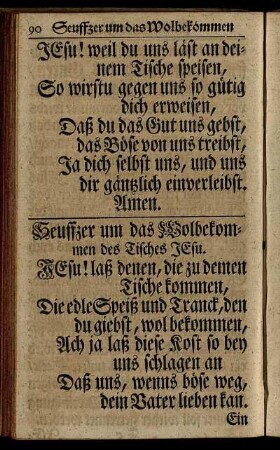 90 Seuffzer um das Wolbekommen
JEsu! weil du uns läst an dei-
nem Tische speisen,
So wirstu gegen uns so gütig
dich erweisen,
Daß du das Gut uns gebst,
das Böse von uns treibst,
Ja dich selbst uns, und uns
dir gäntzlich einverleibst.
Amen.
Seuffzer um das Wolbekom-
men des Tisches JEsu.
JEsu! laß denen, die zu deinen
Tische kommen,
Die edle Speiß und Tranck, den
du giebst, wol bekommen,
Ach ja laß diese Kost so bey
uns schlagen an
Daß uns, wenns böse weg,
dein Vater lieben kan.
Ein